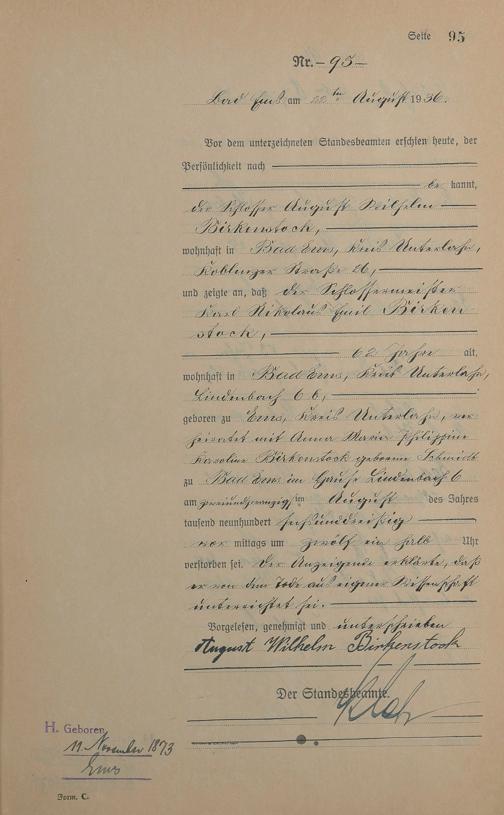 Seite 95
Nr. 95
Bad Ems am 22ten August 1936.
Vor dem unterzeichneten Standesbeamten erschien heute, der
Persönlichkeit nach
be kannt,
der Schlosser August Wilhelm
Birkenstock,
wohnhaft in Bad Ems, Kreis Unterlahn,
Koblenzer Straße 26,
und zeigte an, daß der Schlossermeister
Karl Nikolaus Emil Birken
stock,
62 Jahre alt,
wohnhaft in Bad Ems, Kreis Unterlahn,
Lindenbach 6 b,
geboren zu Ems, Kreis Unterlahn, ver
heiratet mit Anna Maria Philippine
Karoline Birkenstock geborene Schmidt
zu Bad Ems im Hause Lindenbach 6
am zweiundzwanzigsten August des Jahres
tausend neunhundert sechsunddreißig
vor mittags um zwölf ein halb Uhr
verstorben sei. Der Anzeigende erklärte, daß
er von dem Tode aus eigener Wissenschaft
unterrichtet sei.
Vorgelesen, genehmigt und unterschrieben
August Wilhelm Birkenstock
Der Standesbeamte.
H. Geboren
11. November 1873
Ems
Form. C.